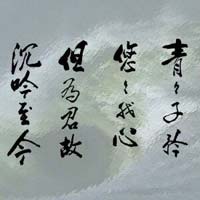 青々子衿
悠々我心
但为君故
沉吟至今